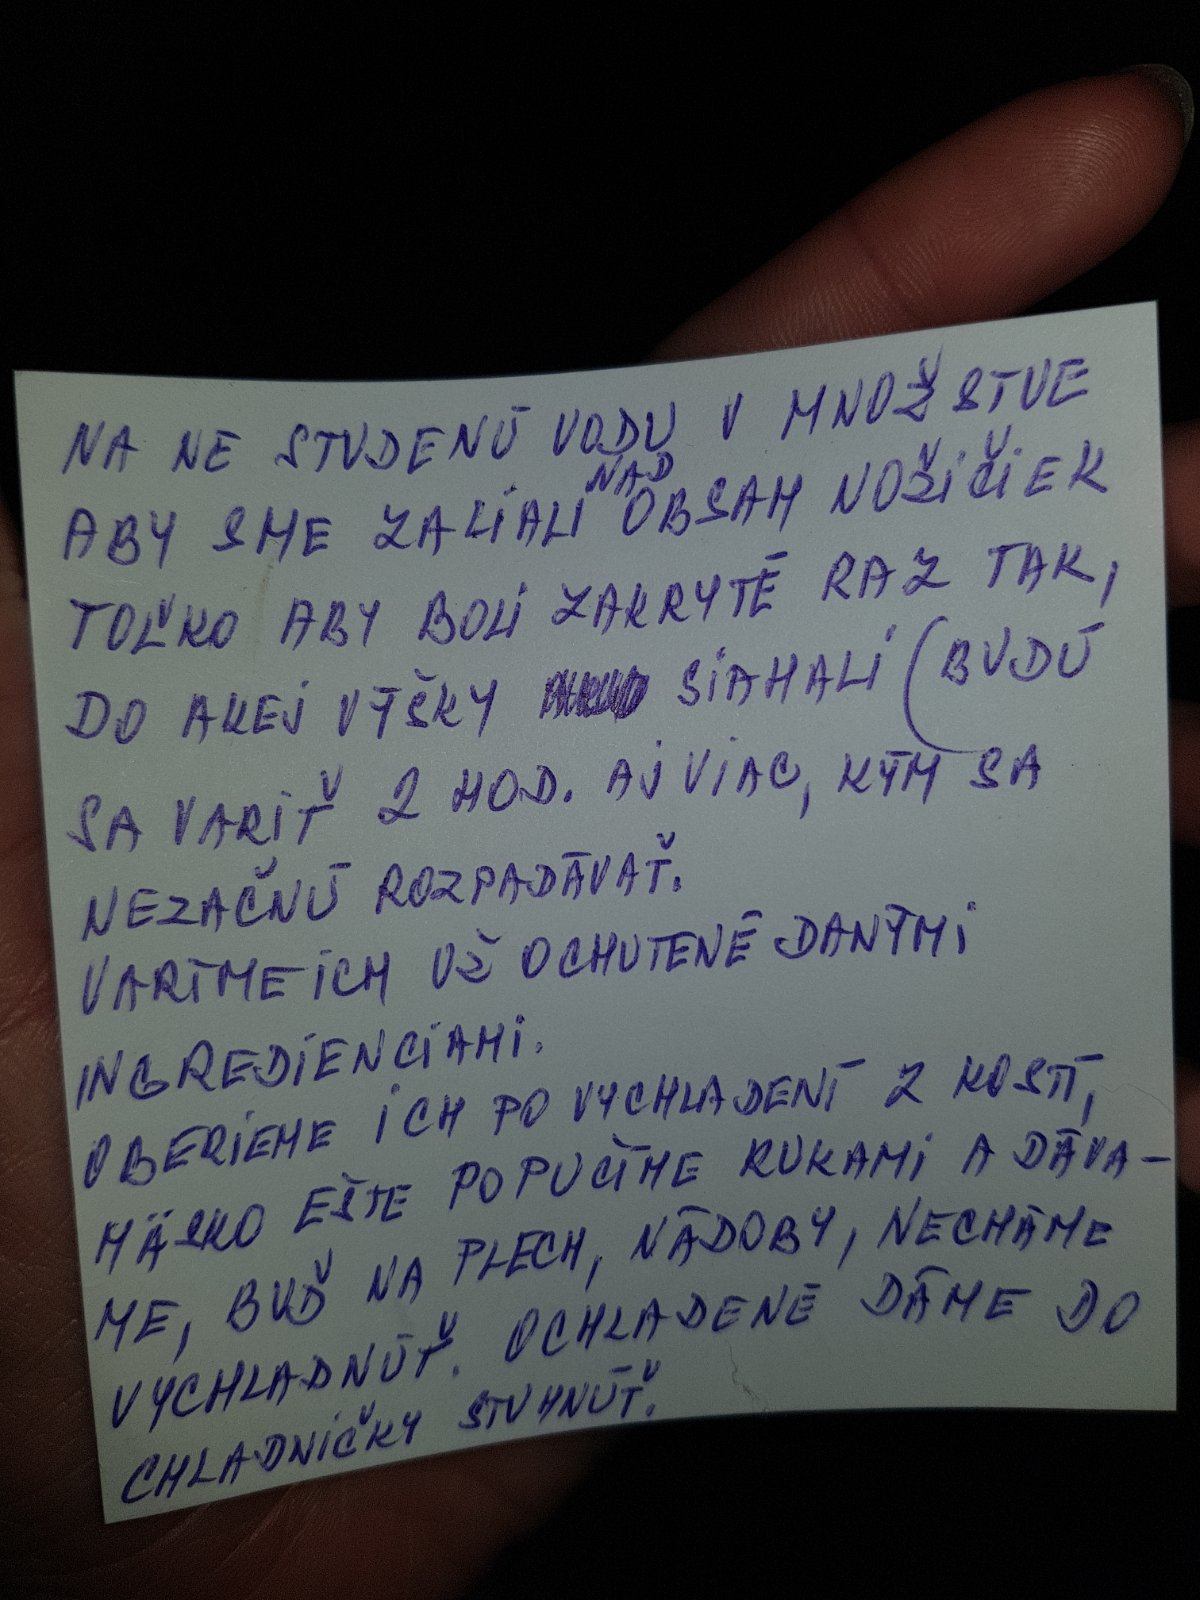 NA NE STUDENÚ VODU V MNOŽSTVE
NAD
ABY SME ZALIALI OBSAH NOŽIČIEK
TOĽKO ABY BOLI ZAKRYTÉ RAZ TAK,
DO AKEJ VÝŠKY SIAHALI (BUDÚ
SA VARIŤ 2 HOD. AJ VIAC, KÝM SA
NEZAČNÚ ROZPADÁVAŤ.
VARÍME ICH UŽ OCHUTENÉ DANÝMI
INGREDIENCIAMI.
OBERIEME ICH PO VYCHLADENÍ Z KOSTÍ,
MÄSKO EŠTE POPUČÍME RUKAMI A DÁVA-
ME, BUĎ NA PLECH, NÁDOBY, NECHÁME
VYCHLADNÚŤ. OCHLADENÉ DÁME DO
CHLADNIČKY STUHNÚŤ.